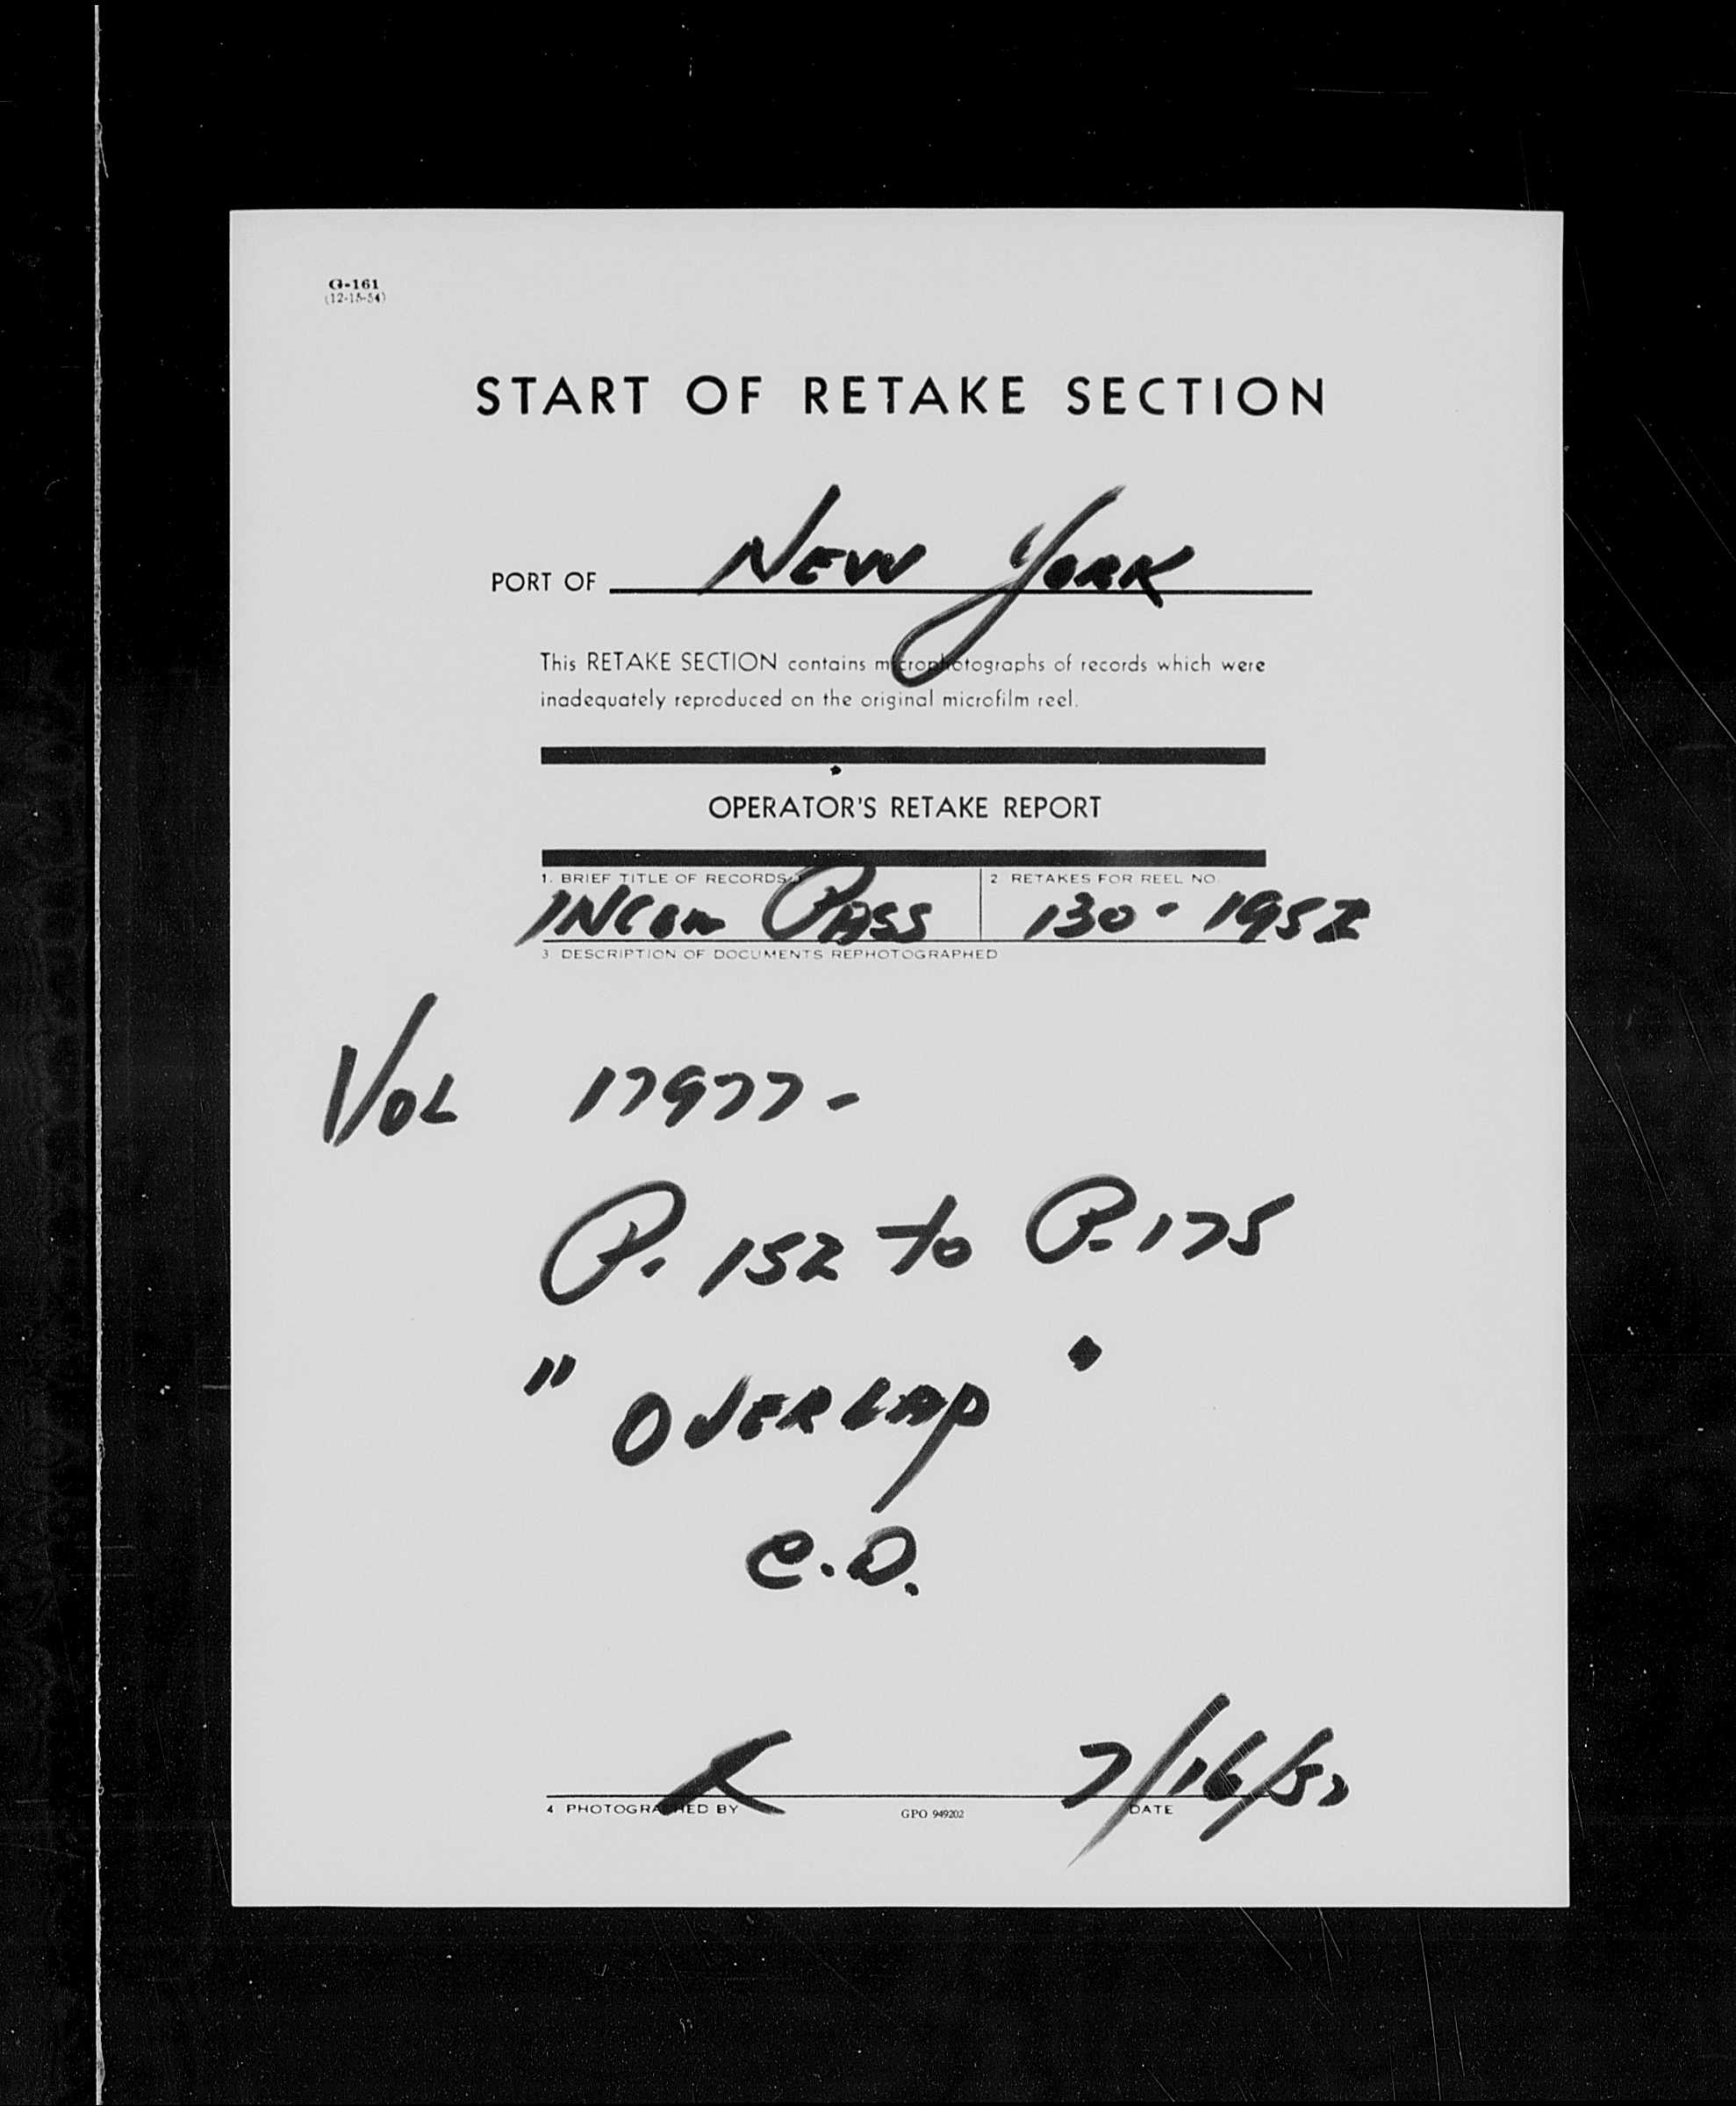 G-161
(12-15-54)
START OF RETAKE SECTION
PORT OF NEW YORK
This RETAKE SECTION contains microphotographs of records which were
inadequately reproduced on the original microfilm reel.
OPERATOR'S RETAKE REPORT
1. BRIEF TITLE OF RECORDS 2 RETAKES FOR REEL NO.
INCOM PASS 130 - 1952
3 DESCRIPTION OF DOCUMENTS REPHOTOGRAPHED
VOL 17977-
P. 152 to P. 175
"OVERLAP"
C.D.
7/16/57
4 PHOTOGRAPHED BY GPO 949202 DATE